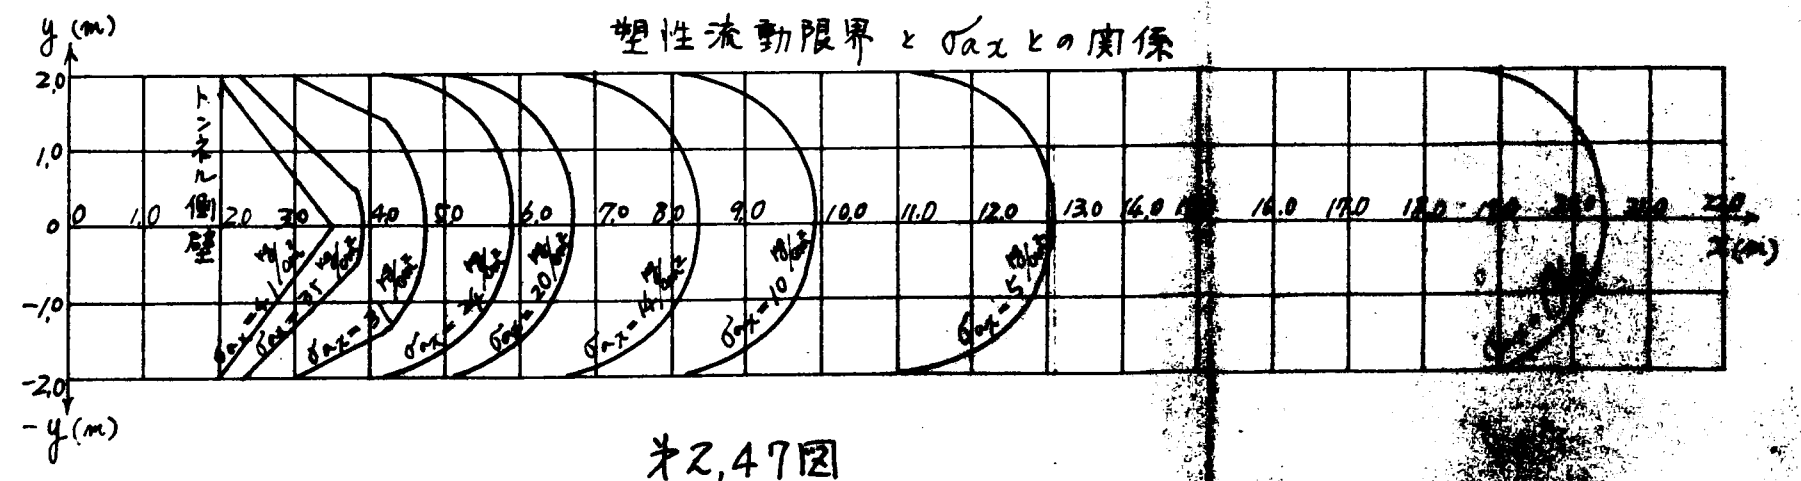 塑性流動限界とσaxとの関係
y(m)
2.0
1.0
0
-1.0
-2.0
-y(m)
トンネル側壁
0 1.0 2.0 3.0 4.0 5.0 6.0 7.0 8.0 9.0 10.0 11.0 12.0 13.0 14.0 16.0 17.0 18.0 19.0 20.0 21.0 22.0
x(m)
σax=41 kg/cm²
σax=35 kg/cm²
σax=31 kg/cm²
σax=24 kg/cm²
σax=20 kg/cm²
σax=14 kg/cm²
σax=10 kg/cm²
σax=5 kg/cm²
第2,47図